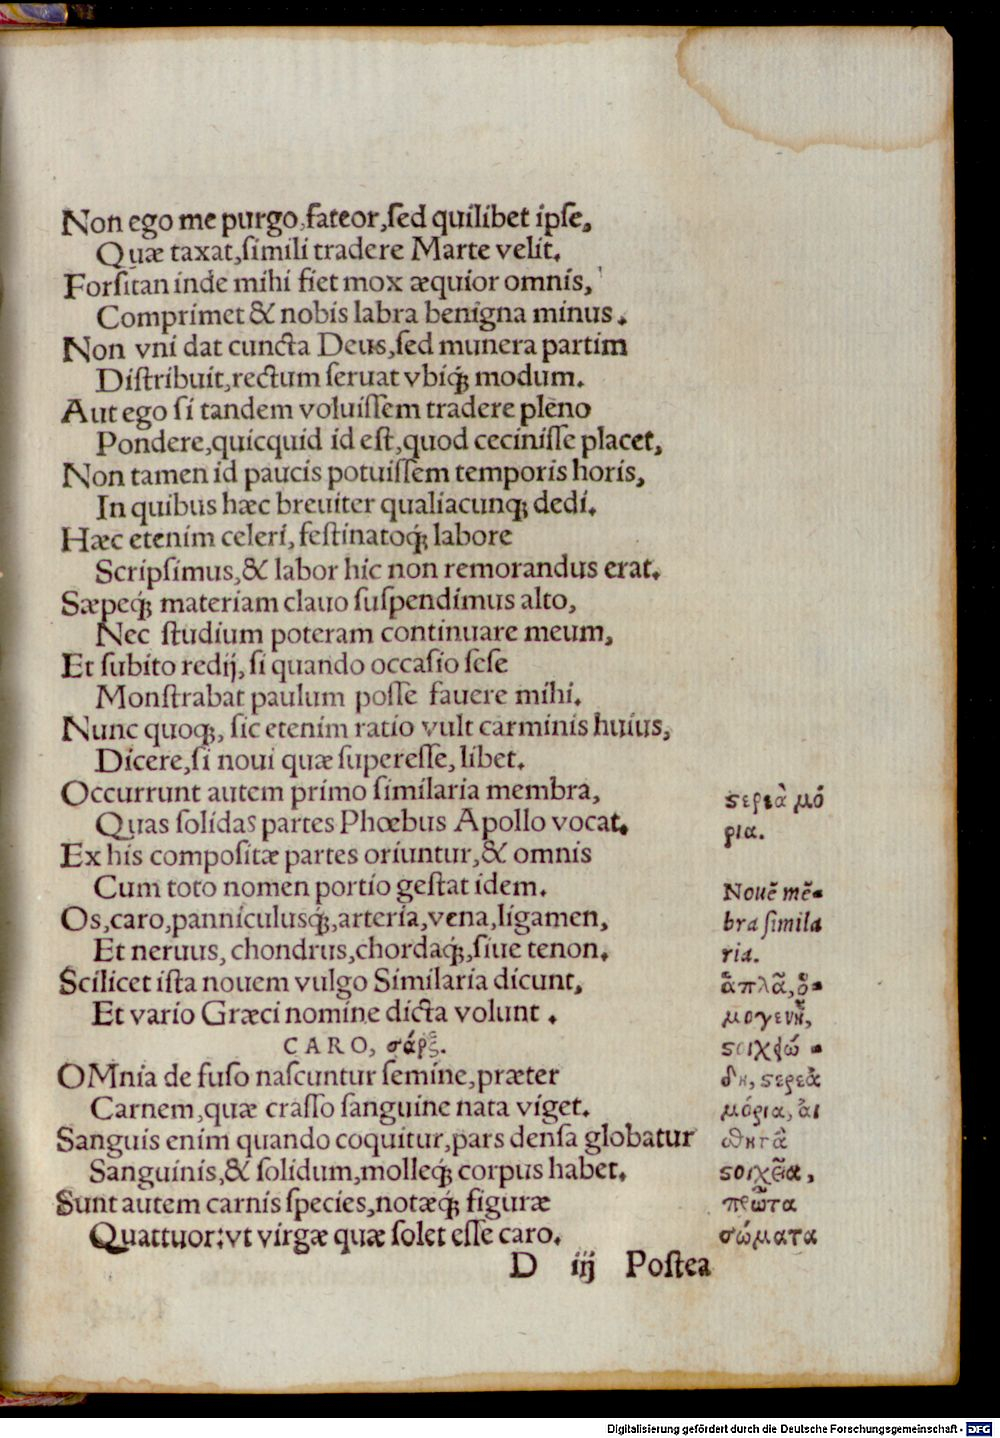 Non ego me purgo, fateor, ſed quilibet ipſe,
Quæ taxat, ſimili tradere Marte velit.
Forſitan inde mihi fiet mox æquior omnis,
Comprimet & nobis labra benigna minus.
Non vni dat cuncta Deus, ſed munera partim
Diſtribuit, rectum ſeruat vbiq́; modum.
Aut ego ſi tandem voluiſſem tradere pleno
Pondere, quicquid id eſt, quod ceciniſſe placet,
Non tamen id paucis potuiſſem temporis horis,
In quibus hæc breuiter qualiacunq; dedi.
Hæc etenim celeri, feſtinatoq́; labore
Scripſimus, & labor hic non remorandus erat.
Sæpeq́; materiam clauo ſuſpendimus alto,
Nec ſtudium poteram continuare meum,
Et ſubito redij, ſi quando occaſio ſeſe
Monſtrabat paulum poſſe fauere mihi.
Nunc quoq;, ſic etenim ratio vult carminis huius,
Dicere, ſi noui quæ ſupereſſe, libet.
Occurrunt autem primo ſimilaria membra,
Quas ſolidas partes Phœbus Apollo vocat.
Ex his compoſitæ partes oriuntur, & omnis
Cum toto nomen portio geſtat idem.
Os, caro, panniculusq́;, arteria, vena, ligamen,
Et neruus, chondrus, chordaq́;, ſiue tenon.
Scilicet iſta nouem vulgo Similaria dicunt,
Et vario Græci nomine dicta volunt.
CARO, σάρξ.
OMnia de fuſo naſcuntur ſemine, præter
Carnem, quæ craſſo ſanguine nata viget.
Sanguis enim quando coquitur, pars denſa globatur
Sanguinis, & ſolidum, molleq́; corpus habet.
Sunt autem carnis ſpecies, notæq́; figuræ
Quattuor: vt virgæ quæ ſolet eſſe caro.
D iij Poſtea
ϛερεὰ μό
ρια.
Nouē mē-
bra ſimila
ria.
ἁπλᾶ, ὁ-
μογενῆ,
ϛοιχιώ-
δη, ϛερεὰ
μόρια, αἰ
σθητὰ
ϛοιχεῖα,
πρῶτα
σώματα
Digitalisierung gefördert durch die Deutsche Forschungsgemeinschaft - DFG